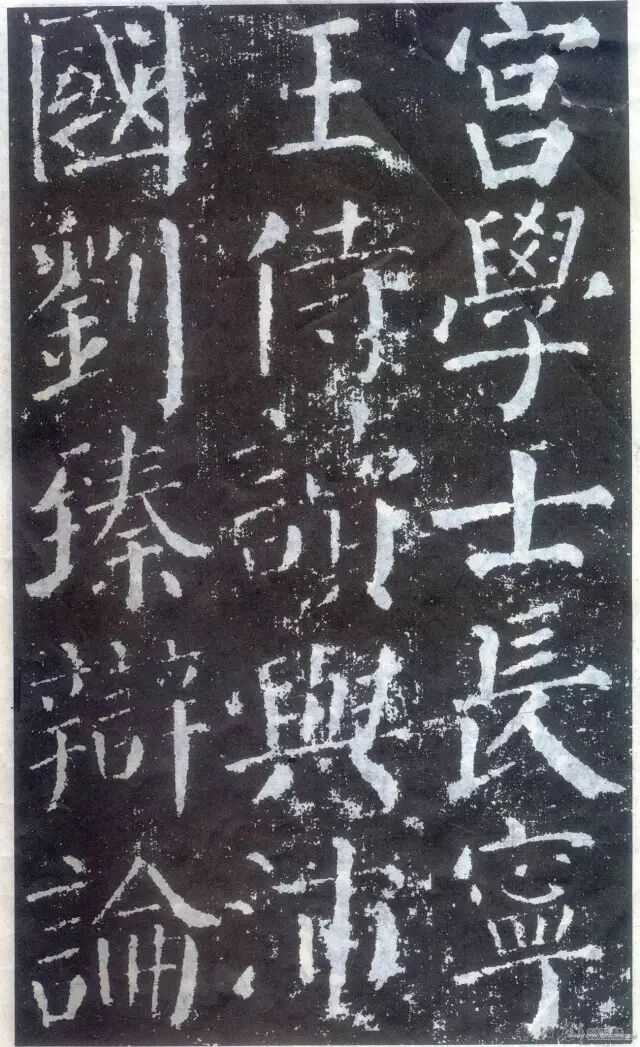 宫學士長寧
王侍讀與沛
國劉臻辯論